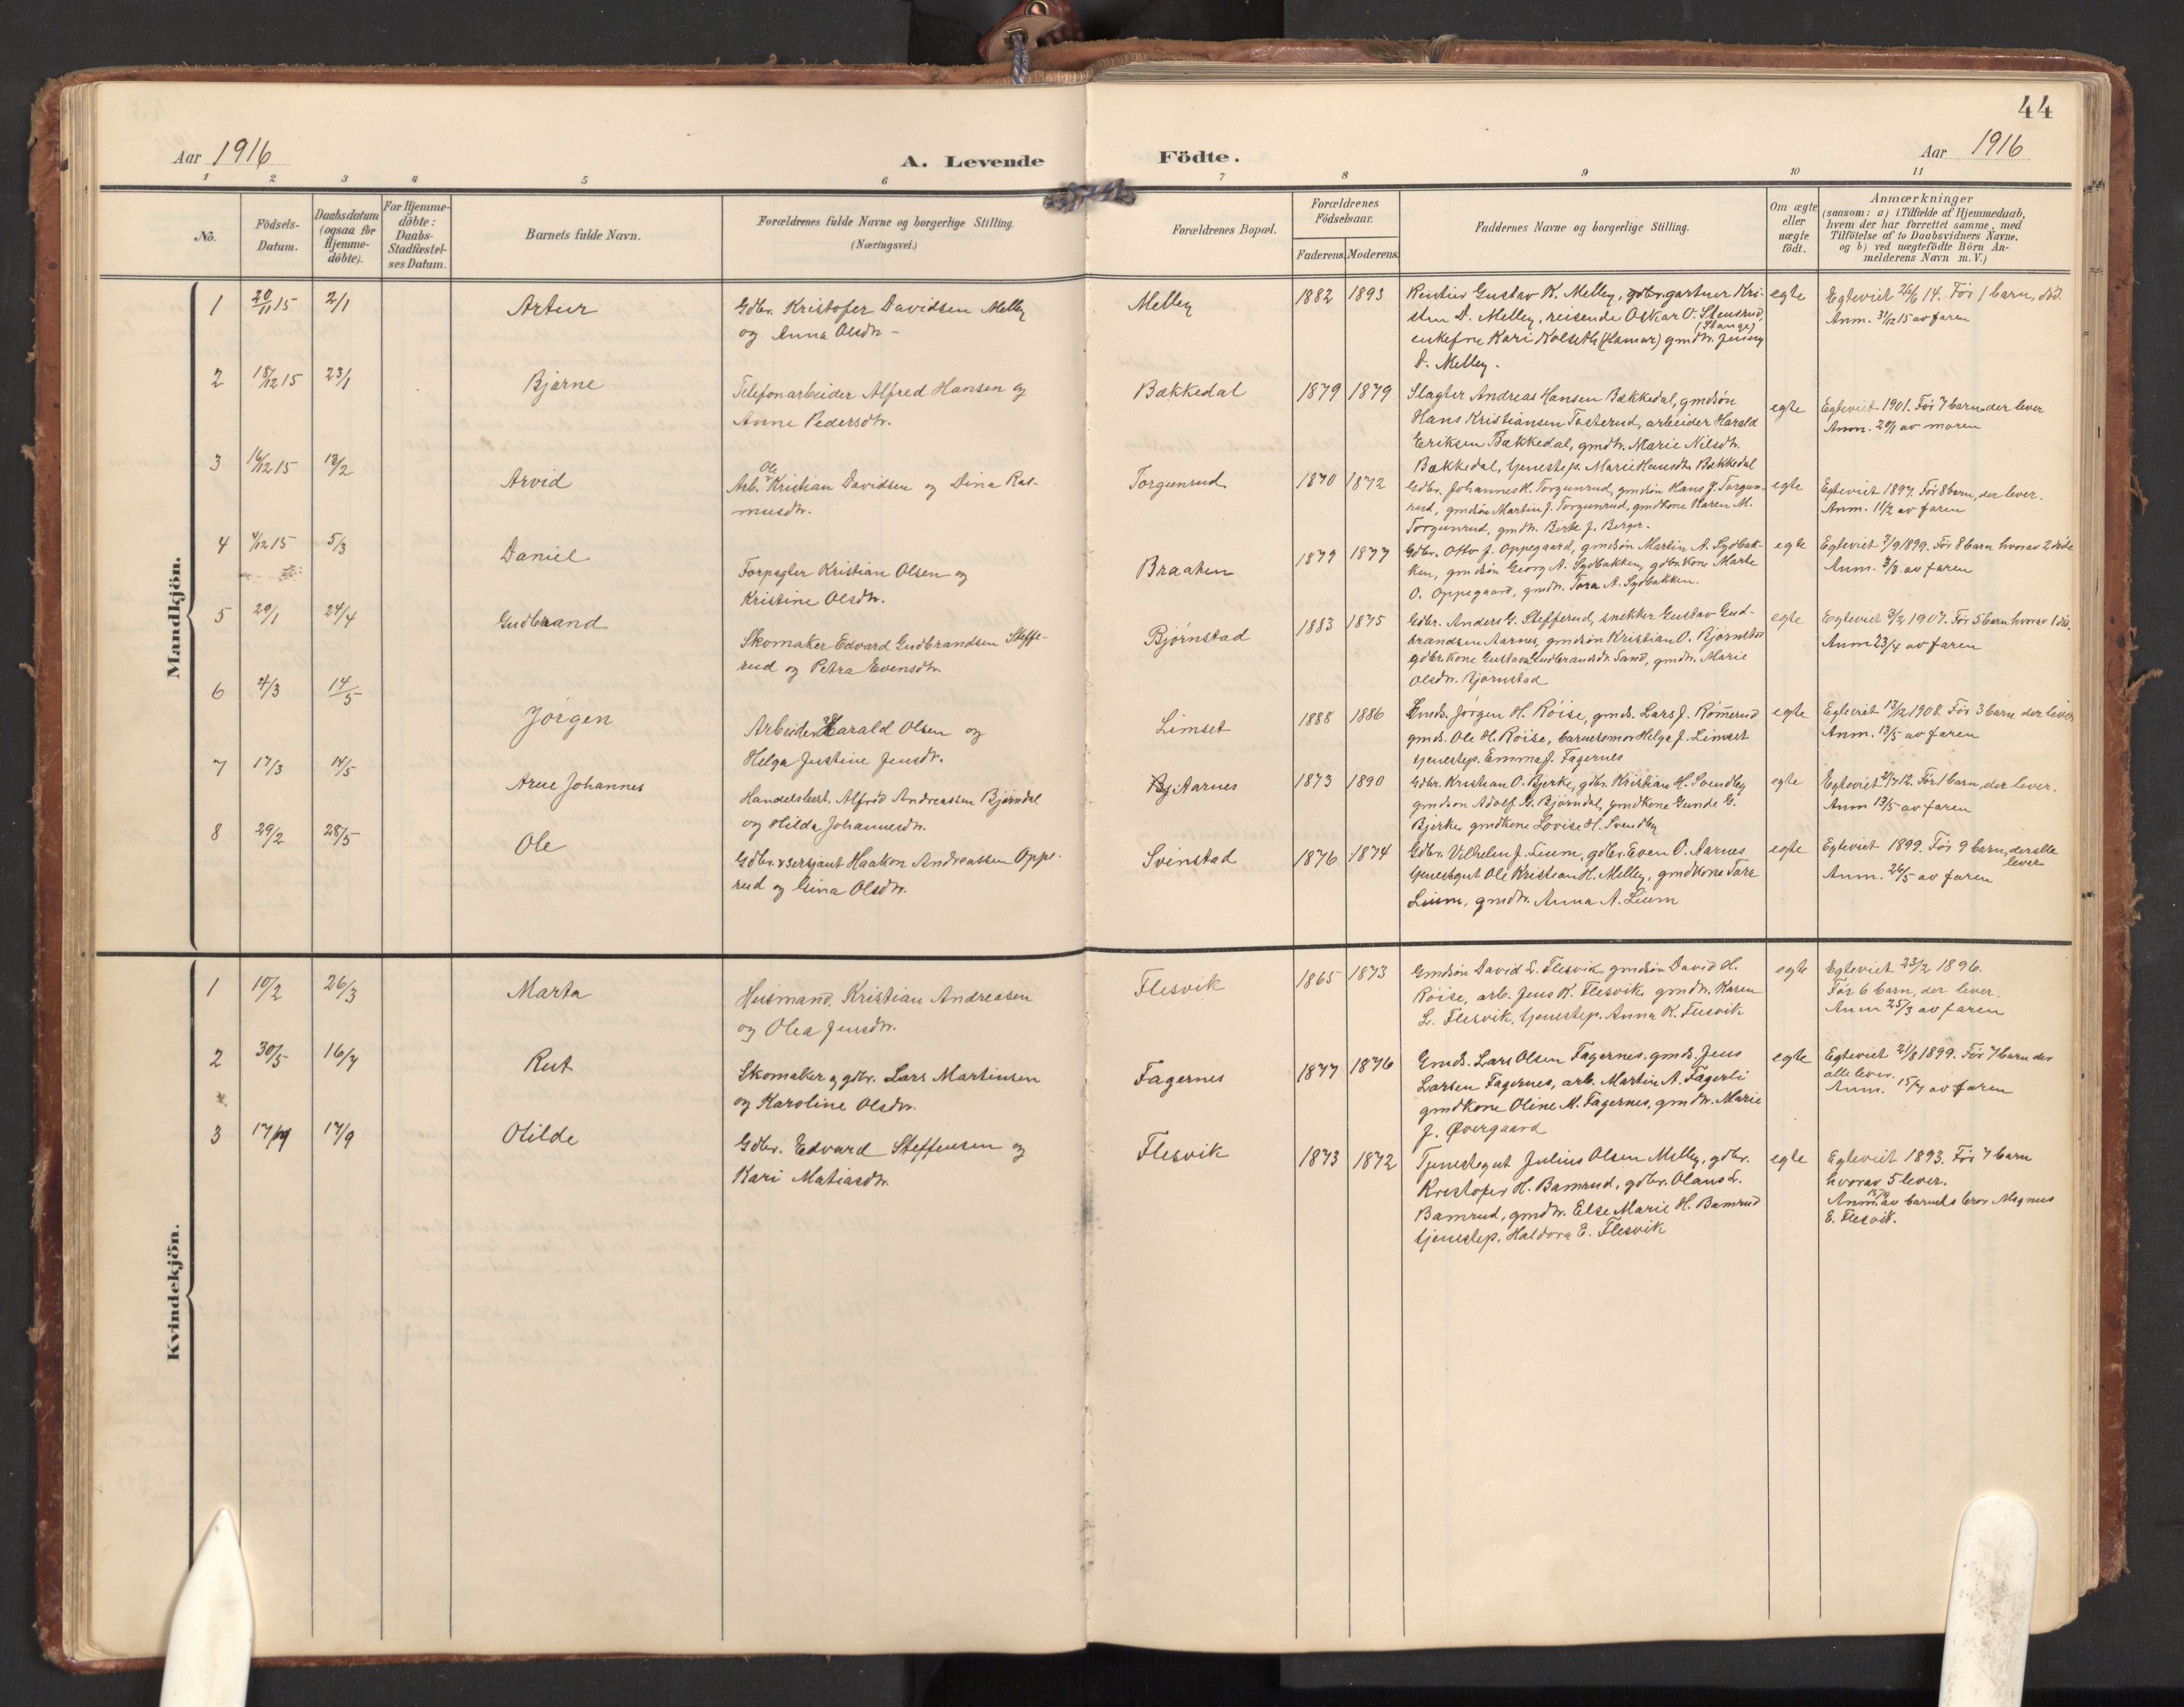 44
Aar 1916
A. Levende Födte.
Aar 1916
1 2 3 4 5 6 7 8 9 10 11
No.
Födsels-
Datum.
Daabsdatum
(ogsaa for
Hjemme-
döbte).
For Hjemme-
döbte:
Daabs-
Stadfæstel-
ses Datum.
Barnets fulde Navn.
Forældrenes fulde Navne og borgerlige Stilling.
(Næringsvei.)
Forældrenes Bopæl.
Forældrenes
Födselsaar.
Faderens. Moderens.
Faddernes Navne og borgerlige Stilling.
Om ægte
eller
uægte
födt.
Anmærkninger
(saasom: a) i Tilfælde af Hjemmedaab,
hvem der har forrettet samme, med
Tilföielse af to Daabsvidners Navne,
og b) ved uægtefödte Börn An-
melderens Navn m. V.)
Mandkjön.
1 20/11 15 2/1 Artur
Gdbr. Kristofer Davidsen Melby
og Anna Olsdtr. -
Melby 1882 1893
Rentier Gustav K. Melby, gartner Kri-
sten D. Melby, reisende Oskar O. Stensrud,
(Stange)
enkefru Kari Kolseth (Hamar) gmdtr. Jenny
D. Melby.
egte
Egteviet 26/6 14. Før 1 barn, död.
Anm. 31/12 15 av faren
2 18/12 15 23/1 Bjarne
Telefonarbeider Alfred Hansen og
Anne Pedersdtr.
Bækkedal 1879 1879
Slagter Andreas Hansen Bækkedal, gmdsön
Hans Kristiansen Tosterud, arbeider Harald
Eriksen Bækkedal, gmdtr. Marie Nilsdtr.
Bækkedal, tjenestep. Marie Hansdtr. Bækkedal
egte
Egteviet 1901. Før 7 barn der lever
Anm. 20/1 av moren
3 16/12 15 13/2 Arvid
Ole
Arb. Kristian Davidsen og Dina Ras-
musdtr.
Torgunrud 1870 1872
Gdbr. Johannes H. Torgunrud, gmdsön Hans J. Torgun-
rud, gmdsön Martin J. Torgunrud, gmdkone Karen M.
Torgunrud, gmdtr. Berte J. Berger.
egte
Egteviet 1897. Før 8 barn, der lever.
Anm. 11/2 av faren
4 4/12 15 5/3 Daniel
Forpagter Kristian Olsen og
Kristine Olsdtr.
Braaten 1879 1877
Gdbr. Otto J. Oppegaard, gmdsön Martin A. Sydbak-
ken, gmdsön Georg A. Sydbakken, gdbr.kone Marte
O. Oppegaard, gmdtr. Tora A. Sydbakken.
egte
Egteviet 7/9 1899. Før 8 barn hvorav 2 döde
Anm. 3/3 av faren
5 29/1 24/4 Gudbrand
Skomaker Edvard Gudbrandsen Steffe-
rud og Petra Evensdtr.
Bjørnstad 1883 1875
Gdbr. Anders G. Stefferud, snekker Gustav Gud-
brandsen Aarnes, gmdsön Kristian O. Bjørnstad
gdbr.kone Gustava Gudbrandsdtr. Sand, gmdtr. Marie
Olsdtr. Bjørnstad
egte
Egteviet 3/2 1907. Før 5 barn hvorav 1 död.
Anm 23/4 av faren
6 4/3 14/5 Jørgen
Arbeider Harald Olsen og
Helga Justine Jensdtr.
Limset 1888 1886
Gmds. Jørgen H. Røise, gmds. Lars J. Römerud
gmds. Ole H. Røise, barnets mor Helga J. Limset
tjenestep. Emma J. Fagernes
egte
Egteviet 13/12 1908. Før 3 barn der lever
Anm. 13/5 av faren
7 17/3 14/5 Arne Johannes
Handelsbest. Alfred Andreassen Bjørndal
og Hilda Johannesdtr.
Aarnes 1873 1890
Gdbr. Kristian O. Bjerke, gdbr. Kristian H. Svendby
gmdsön Adolf A. Bjørndal, gmdkone Gunde G.
Bjerke, gmdkone Lovise H. Svendby
egte
Før 1 barn, der lever.
Anm 13/5 av faren
8 29/2 28/5 Ole
Gdbr. & sersjant Haakon Andreassen Oppe-
rud og Gina Olsdtr.
Svinstad 1876 1874
Gdbr. Vilhelm J. Lium, gdbr. Even O. Aarnes
tjenestegut Ole Kristian H. Melby, gmdkone Tora
Lium, gmdtr. Anna A. Lium
egte
Egteviet 1899. Før 9 barn, der alle
lever
Anm. 26/5 av faren
Kvindekjön.
1 10/2 26/3 Marta
Husmand Kristian Andreasen
og Olea Jensdtr.
Flesvik 1865 1873
Gmdsön David L. Flesvik, gmdsön David H.
Røise, arb. Jens K. Flesvik, gmdtr. Karen
L. Flesvik, tjenestep. Anna K. Flesvik
egte
Egteviet 23/2 1896.
Før 6 barn, der lever.
Anm 25/3 av faren
2 30/5 16/7 Rut
Skomaker og gdbr. Lars Martinsen
og Karoline Olsdtr.
Fagernes 1877 1876
Gmds. Lars Olsen Fagernes, gmds. Jens
Larsen Fagernes, arb. Martin A. Fagerli
gmdkone Oline M. Fagernes, gmdtr. Marie
J. Øvergaard
egte
Egteviet 21/8 1899. Før 7 barn der
alle lever.
Anm. 15/7 av faren
3 17/7 17/9 Otilde
Gdbr. Edvard Steffensen og
Kari Matiasdtr.
Flesvik 1873 1872
Tjenestegut Julius Olsen Melby, gdbr.
Kristofer H. Bamrud, gdbr. Olaus L.
Bamrud, gmdtr. Else Marie H. Bamrud
tjenestep. Haldora E. Flesvik
egte
Egteviet 1893. Før 7 barn
hvorav 5 lever.
Anm. 15/9 av barnets bror Magnus
E. Flesvik.